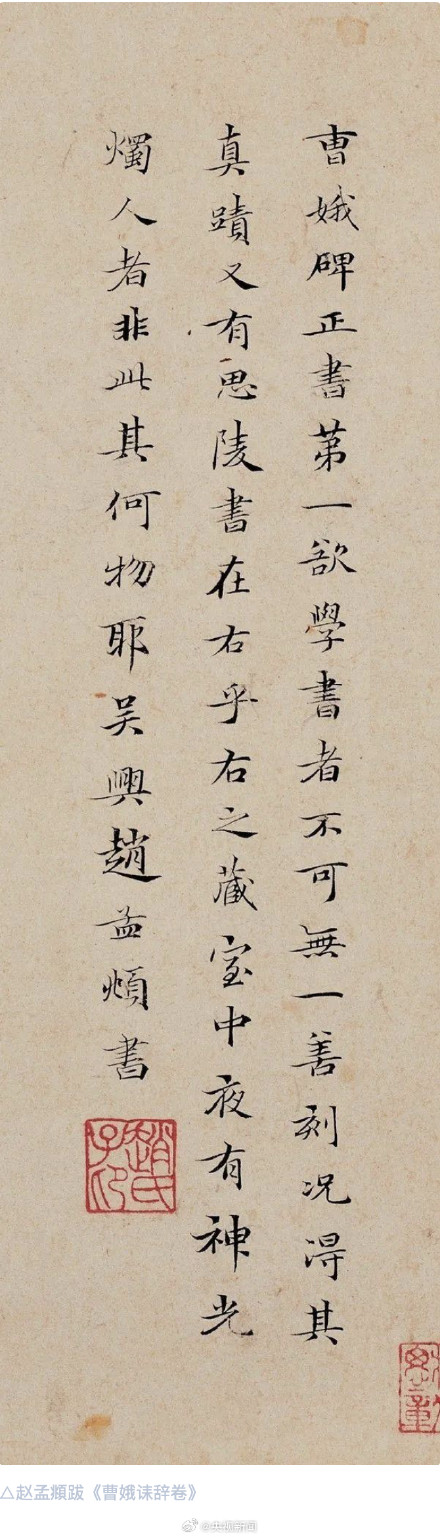 曺娥碑正書第一欲學書者不可無一善刻况得其
真蹟又有思陵書在右乎右之藏室中夜有神光
燭人者非此其何物耶吴興趙孟頫書
趙氏子印
△赵孟頫跋《曹娥诔辞卷》
@央视新闻